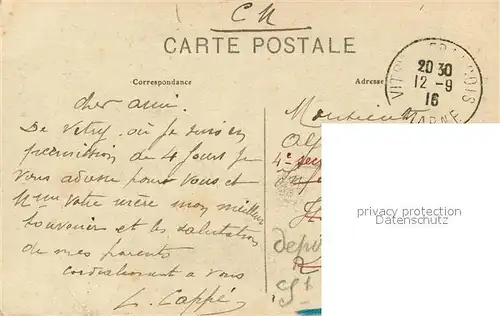 CH
CARTE POSTALE
Correspondance
Adresse
VITRY
FRANÇOIS
20 30
12 - 9
16
MARNE
cher ami.
De Vitry où je suis en
permission de 4 jours je
vous adresse pour vous et
votre mère mon meilleur
souvenir et les salutations
de mes parents
cordialement a vous
L. Cappé
Monsieur
4e
privacy protection
Datenschutz
St